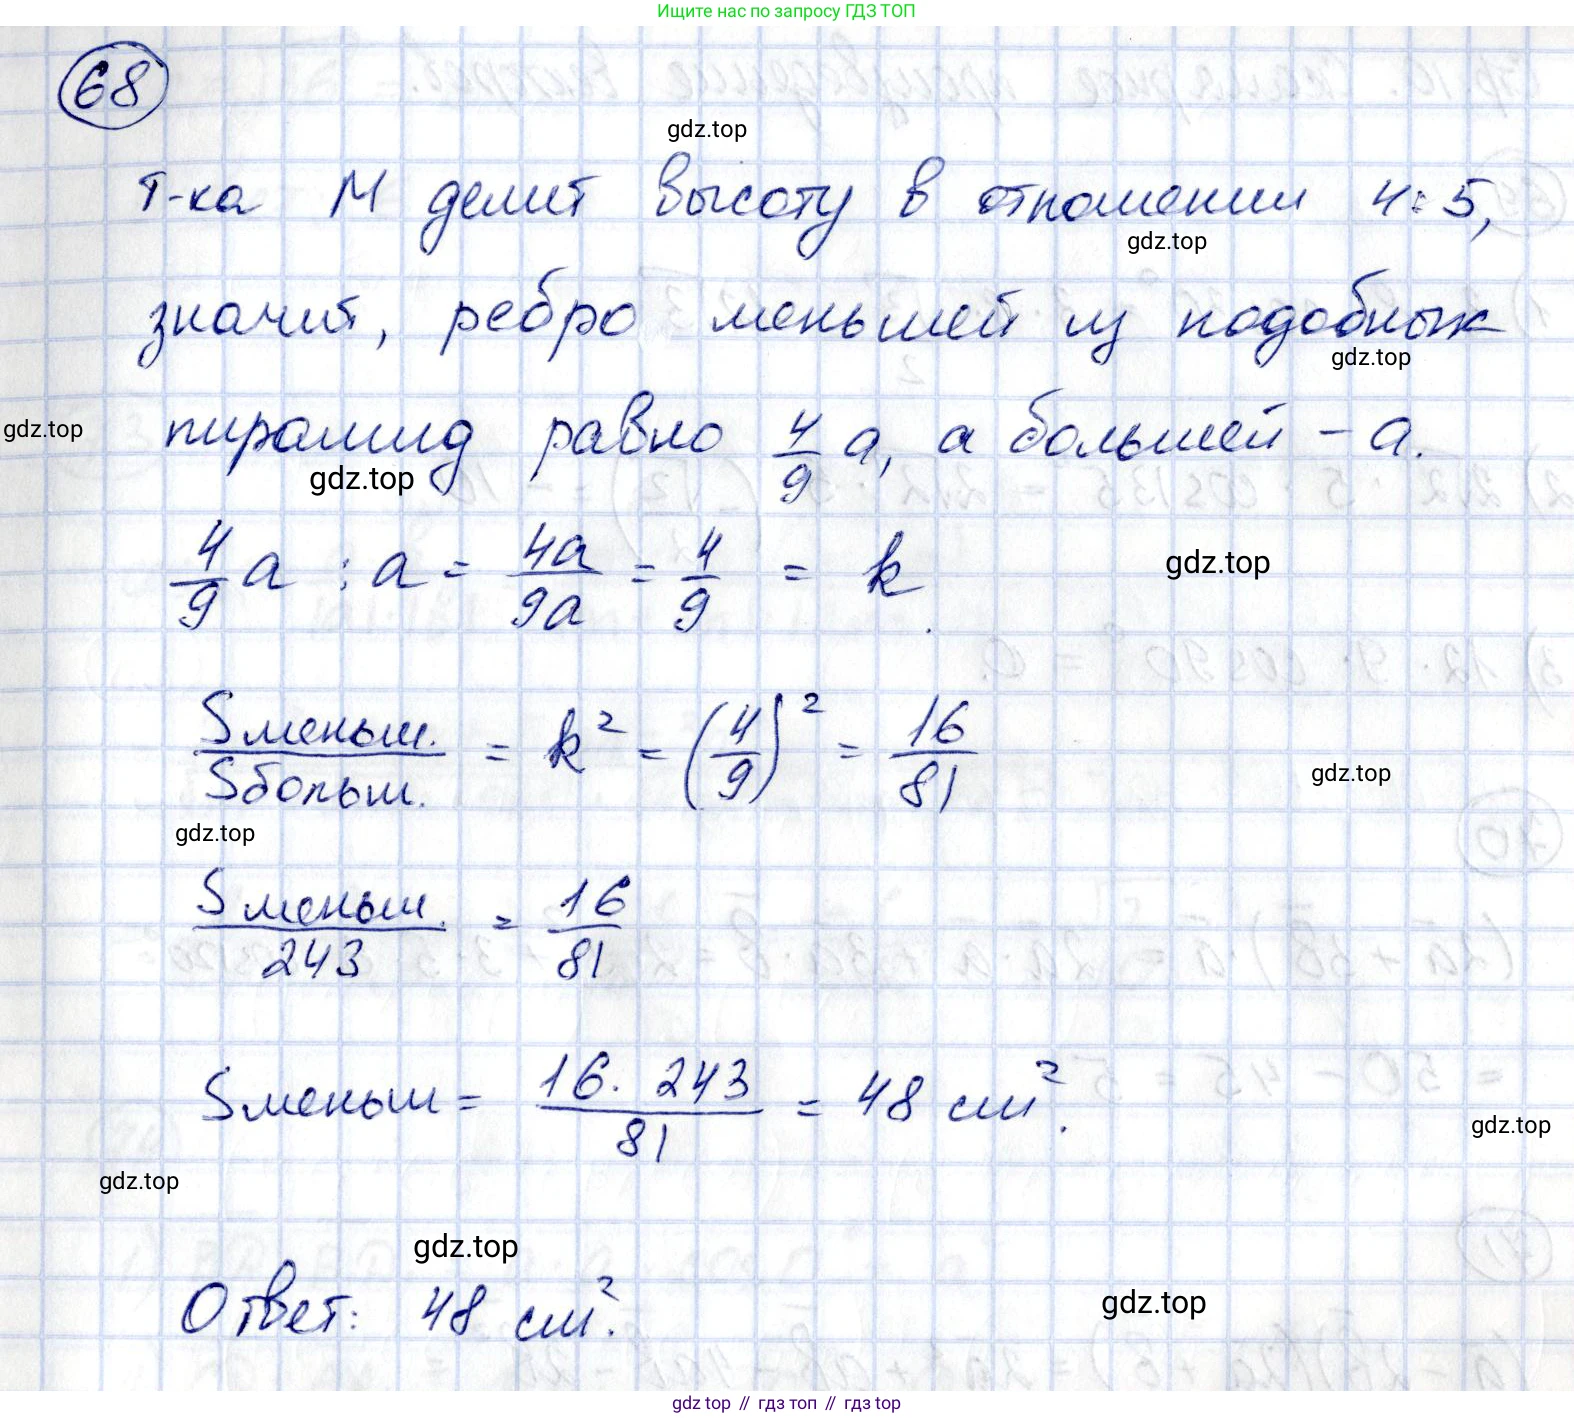 Ищите нас по запросу ГДЗ ТОП
68
gdz.top
т-ка М делит высоту в отношении 4:5,
gdz.top
значит, ребро меньшей из подобных
gdz.top
пирамид равно 4/9 a, а большей – a.
gdz.top
gdz.top
4/9 a : a = 4a/9a = 4/9 = k.
gdz.top
Sменьш./Sбольш. = k² = (4/9)² = 16/81
gdz.top
gdz.top
Sменьш./243 = 16/81
Sменьш = 16·243/81 = 48 см².
gdz.top
gdz.top
gdz.top
Ответ: 48 см².
gdz.top
gdz top // гдз топ // гдз top